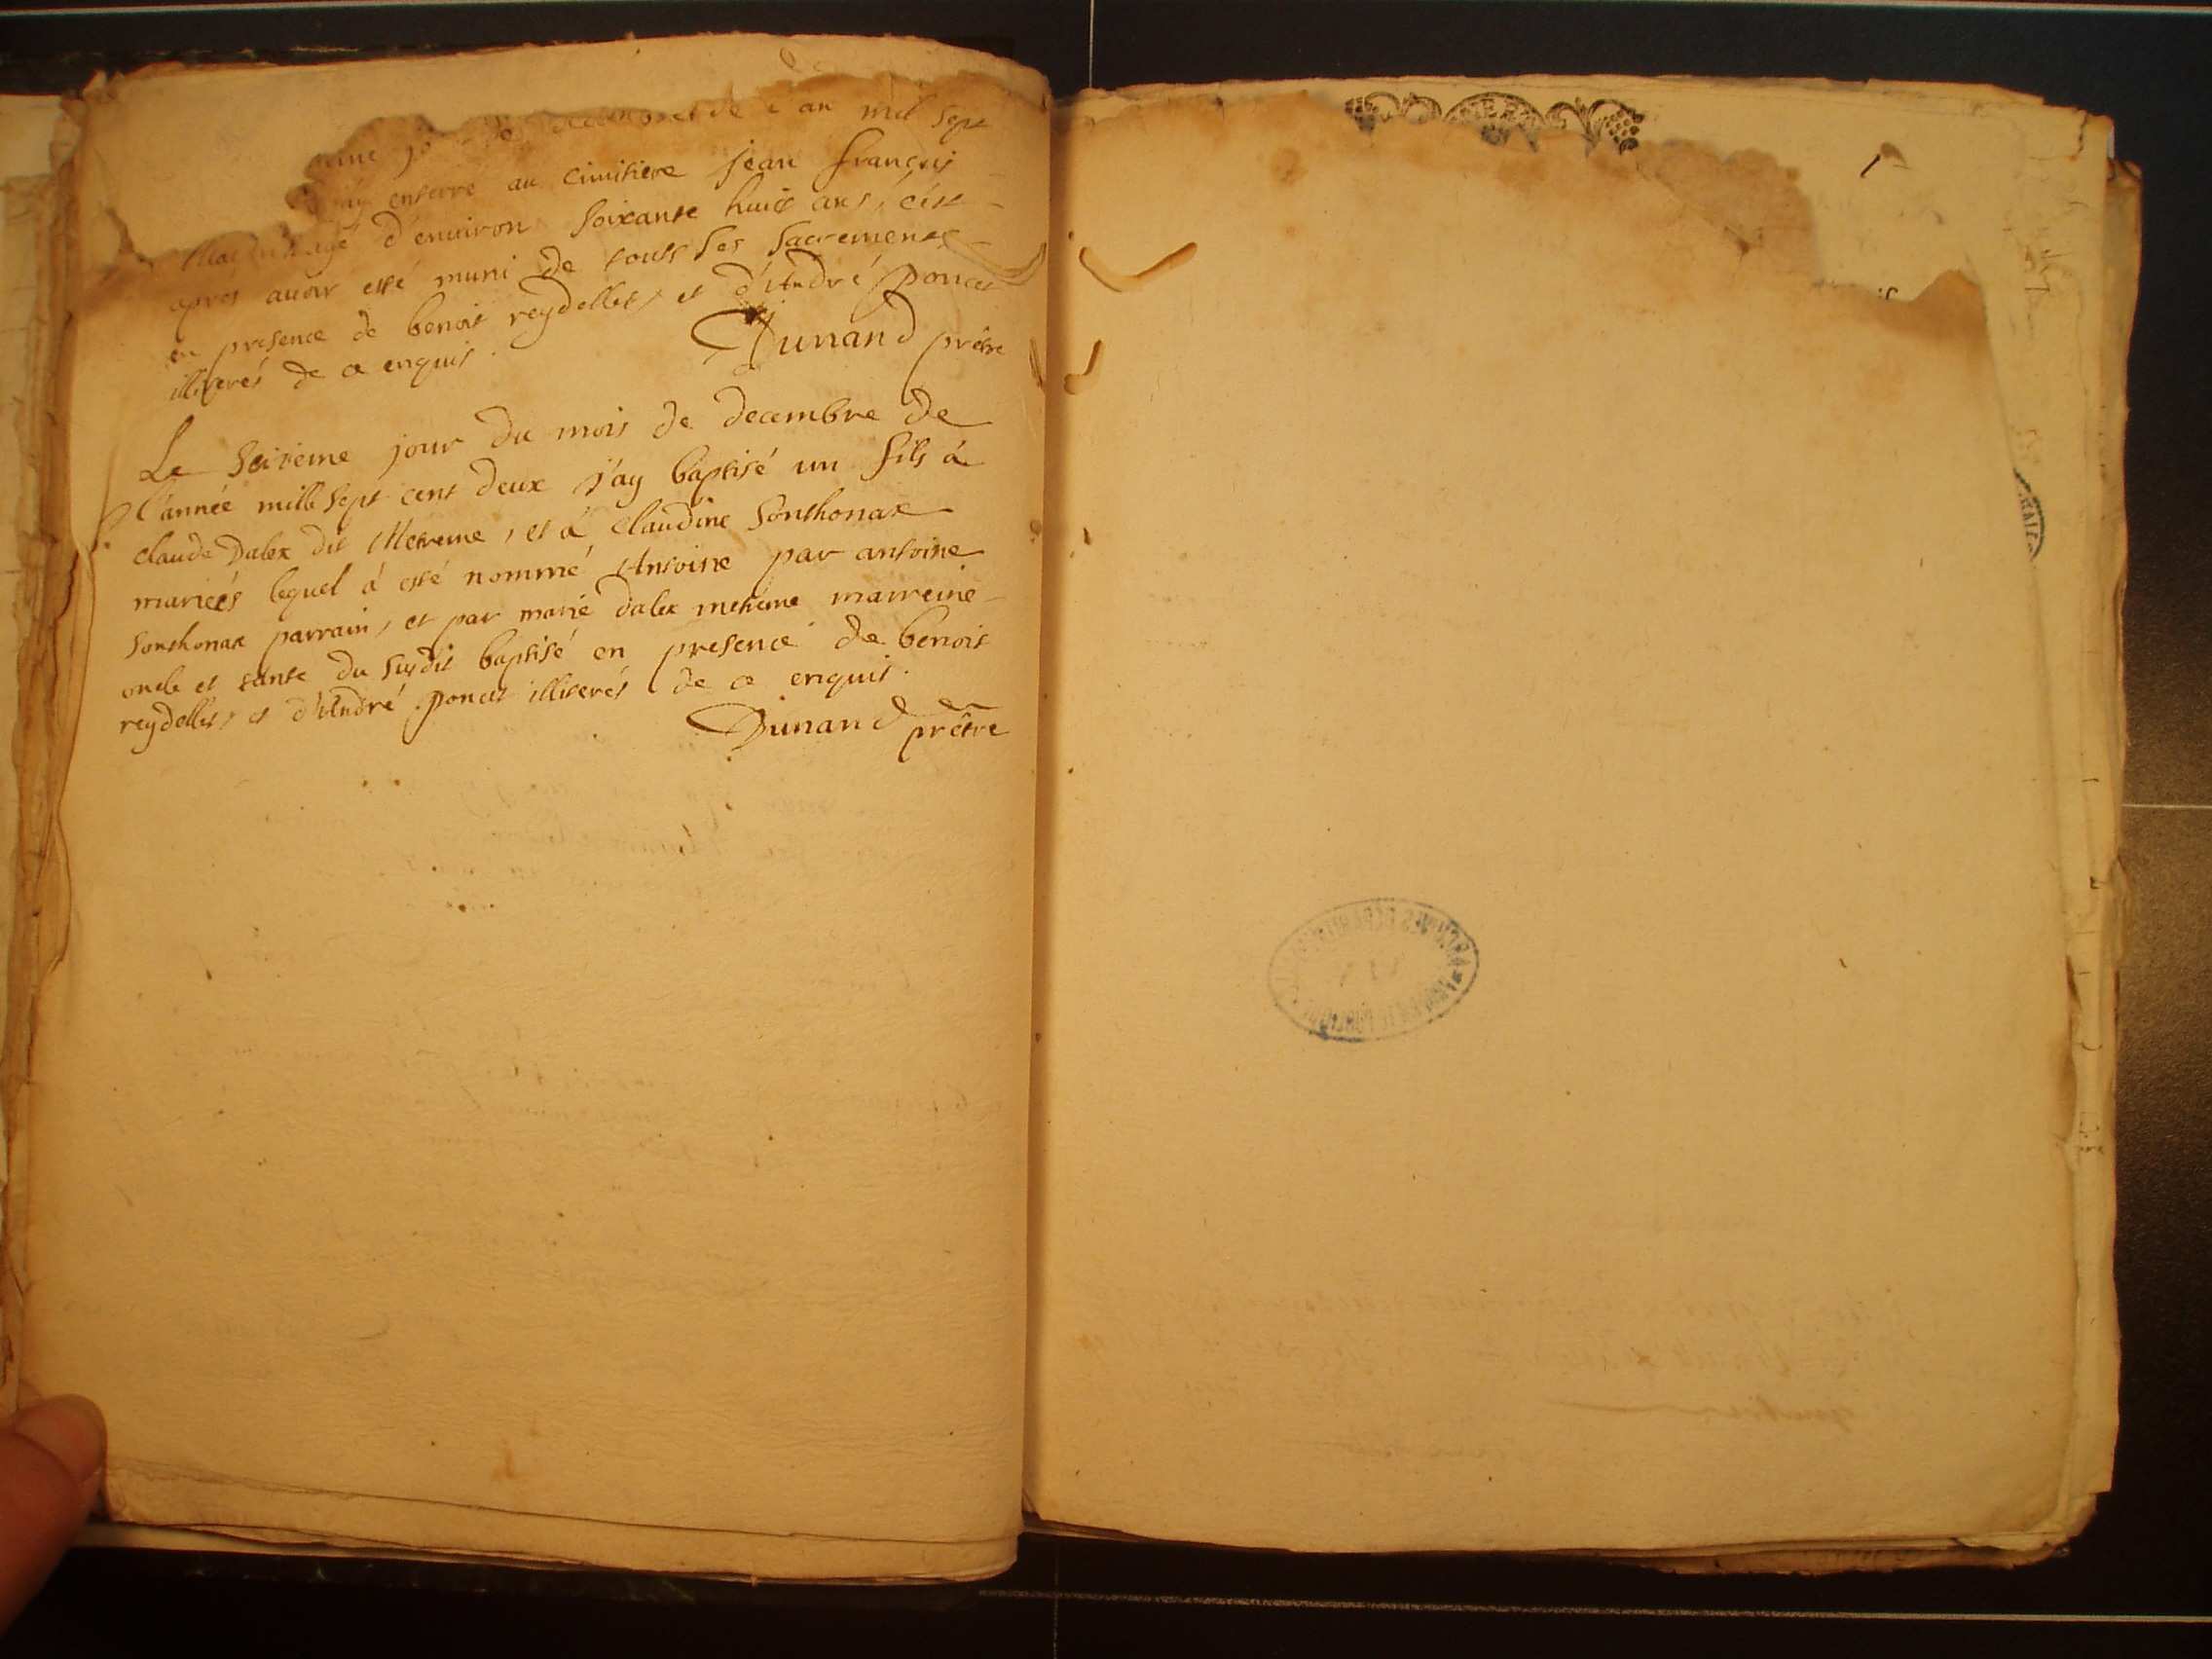 an mil sept
enterré au cimitiere jean françois
d'environ soixante huit ans, c'est
apres avoir esté muni de touts ses sacrements
en presence de benoit reydellet, et d'André poncet
illiterés de ce enquis.
Dunand prêtre
Le seizeme jour du mois de decembre de
l'année mille sept cent deux j'ay baptisé un fils à
claude Dalex dit Metreme, et à Claudine Sonthonax
mariées lequel à esté nommé Antoine par antoine
Sonthonax parrain, et par marie dalex metreme marreine
oncle et tante du susdit baptisé en presence de benoit
reydellet, et d'André poncet illiterés de ce enquis.
Dunand prêtre